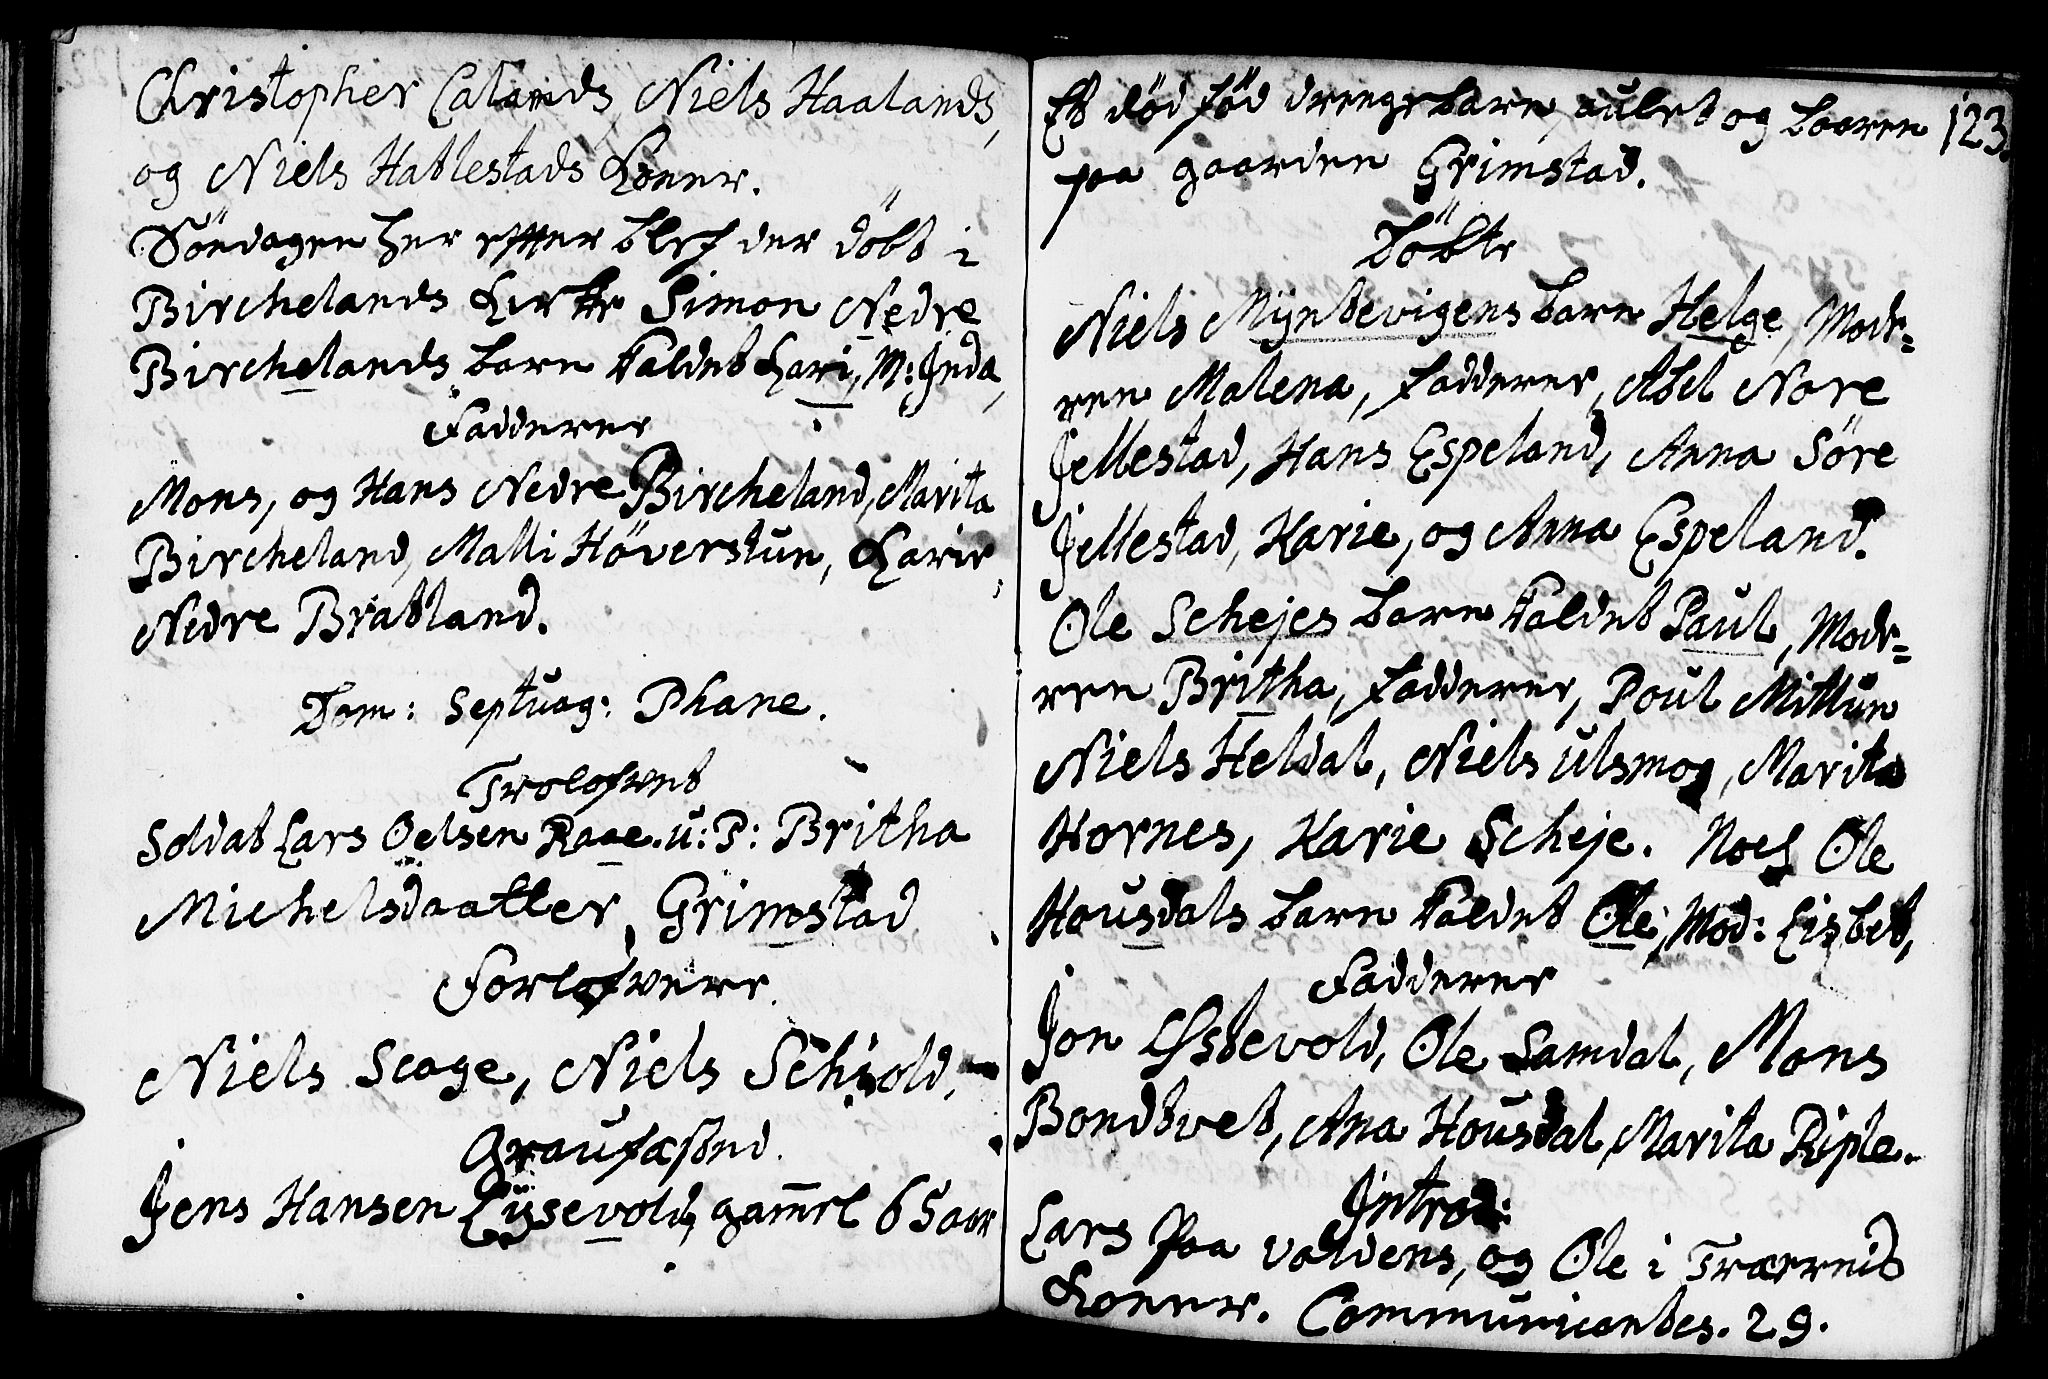 Christopher Calands, Niels Haalands,
og Niels Hatlestads Koner.
Söndagen her effter blef der döbt i
Birchelands Kirke Simon Nedre
Birchelands barn kaldet Kari, M: Inda,
Fadderer
Mons, og Hans Nedre Bircheland, Marita
Bircheland, Malli Höverstun, Karie,
Nedre Bratland.
Dom: Septuag: Phane.
Trolofvet
Soldat Lars Oelsen Raae. u: P: Britha
Michelsdaatter, Grimstad
Forlofvere.
Niels Scage, Niels Schiold,
Graufæsted.
Jens Hansen Lysevold, gamel 65 aar
Et död föd drenge barn, aulet og baaren 123.
paa gaarden Grimstad.
Döbte
Niels Myntevigens barn Helge, Mode=
ren Malena, fadderer, Abel Nore
Jellestad, Hans Espeland, Anna Søre
Jellestad, Karie, og Anna Espeland.
Ole Schejes barn kaldet Paul, Mode=
ren Britha, fadderer, Poul Mittun
Niels Heldal, Niels Ulsmog, Marita
Hornes, Karie Scheje. Noch Ole
Housdals barn kaldet Ole, Mod: Lisbet,
Fadderer
Jon Østevold, Ole Samdal, Mons
Bondtvet, Ana Housdal, Marita Riple.
Introd:
Lars paa Valdens, og Ole i Træernes
Koner. Communicantes. 29.